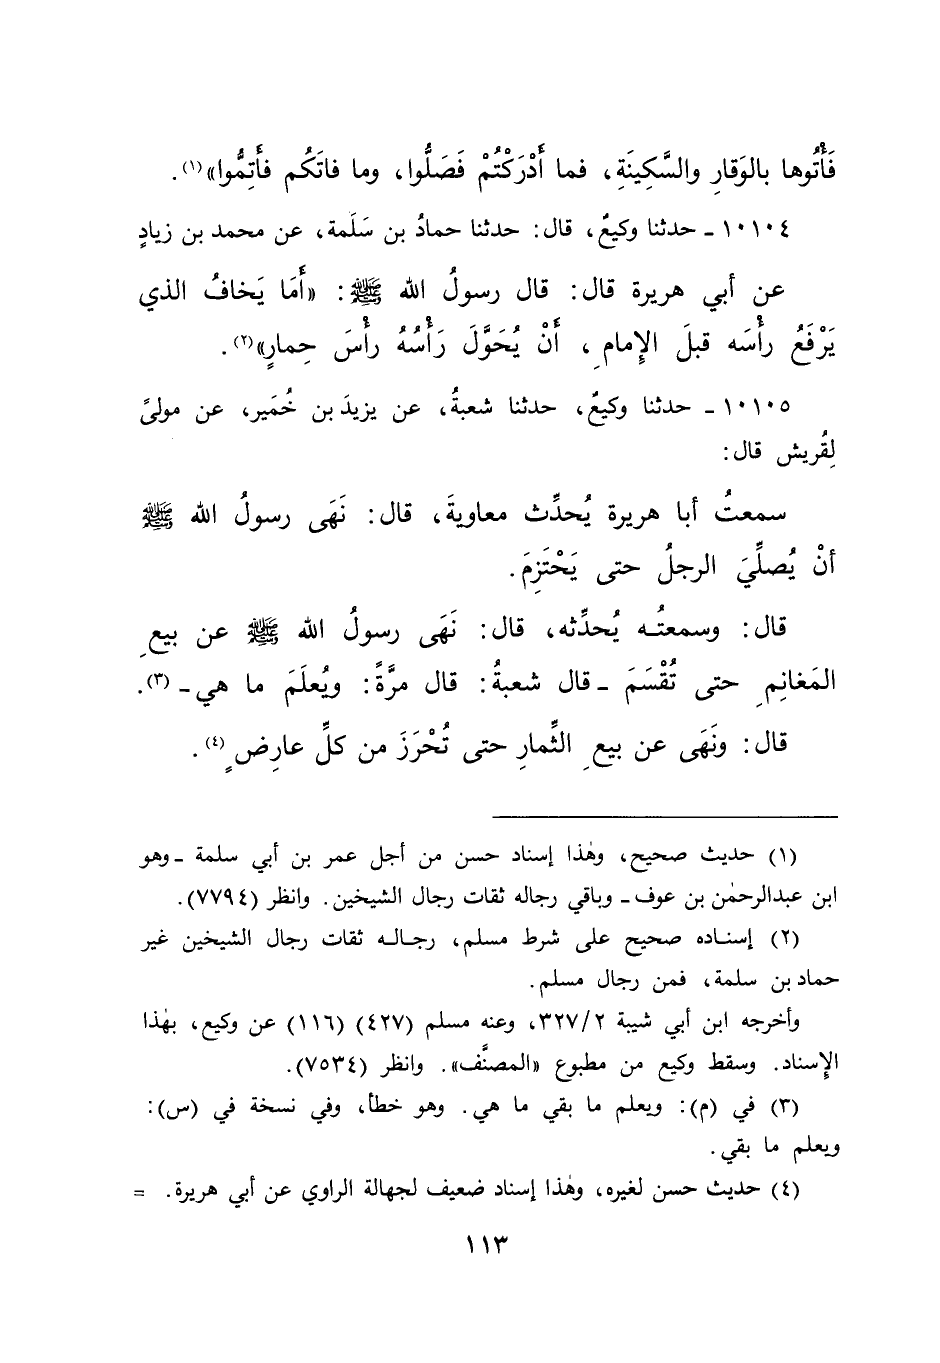 فَأْتُوها بالوَقارِ والسَّكِينَةِ، فما أَدْرَكْتُمْ فَصَلُّوا، وما فاتَكُم فأَتِمُّوا»(١).
١٠١٠٤ - حدثنا وكيعٌ، قال: حدثنا حمادُ بن سَلَمة، عن محمد بن زيادٍ
عن أبي هريرة قال: قال رسولُ الله ﷺ: «أَمَا يَخافُ الذي
يَرْفَعُ رأْسَه قبلَ الإِمامِ، أَنْ يُحَوَّلَ رَأْسُهُ رأْسَ حِمارٍ»(٢).
١٠١٠٥ - حدثنا وكيعٌ، حدثنا شعبةُ، عن يزيدَ بن خُمَير، عن مولىً
لِقُريش قال:
سمعتُ أبا هريرة يُحدِّث معاويةَ، قال: نَهَى رسولُ الله ﷺ
أنْ يُصلِّيَ الرجلُ حتى يَحْتَزِمَ.
قال: وسمعتُـه يُحدِّثه، قال: نَهَى رسولُ الله ﷺ عن بيعِ
المَغانِمِ حتى تُقْسَمَ - قال شعبةُ: قال مرَّةً: ويُعلَمَ ما هي - (٣).
قال: ونَهَى عن بيعِ الثِّمارِ حتى تُحْرَزَ من كلِّ عارِضٍ(٤).
(١) حديث صحيح، وهٰذا إسناد حسن من أجل عمر بن أبي سلمة - وهو
ابن عبدالرحمٰن بن عوف - وباقي رجاله ثقات رجال الشيخين. وانظر (٧٧٩٤).
(٢) إسنـاده صحيح على شرط مسلم، رجـالـه ثقات رجال الشيخين غير
حماد بن سلمة، فمن رجال مسلم.
وأخرجه ابن أبي شيبة ٣٢٧/٢، وعنه مسلم (٤٢٧) (١١٦) عن وكيع، بهٰذا
الإسناد. وسقط وكيع من مطبوع «المصنَّف». وانظر (٧٥٣٤).
(٣) في (م): ويعلم ما بقي ما هي. وهو خطأ، وفي نسخة في (س):
ويعلم ما بقي.
(٤) حديث حسن لغيره، وهٰذا إسناد ضعيف لجهالة الراوي عن أبي هريرة. =
١١٣